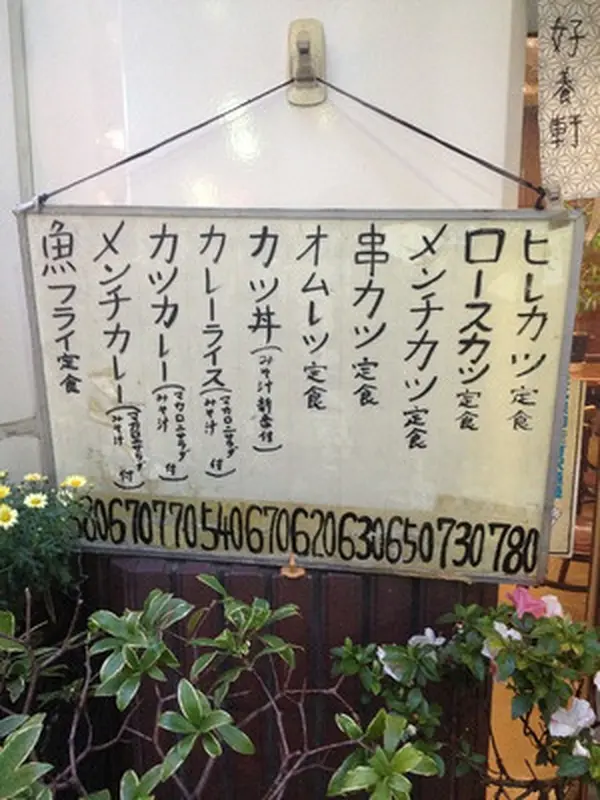 好養軒
ヒレカツ定食 780
ロースカツ定食 730
メンチカツ定食 650
串カツ定食 630
オムレツ定食 620
カツ丼(みそ汁 新香付) 670
カレーライス(マカロニサラダ みそ汁 付) 540
カツカレー(マカロニサラダ みそ汁 付) 770
メンチカレー(マカロニサラダ みそ汁 付) 670
魚フライ定食